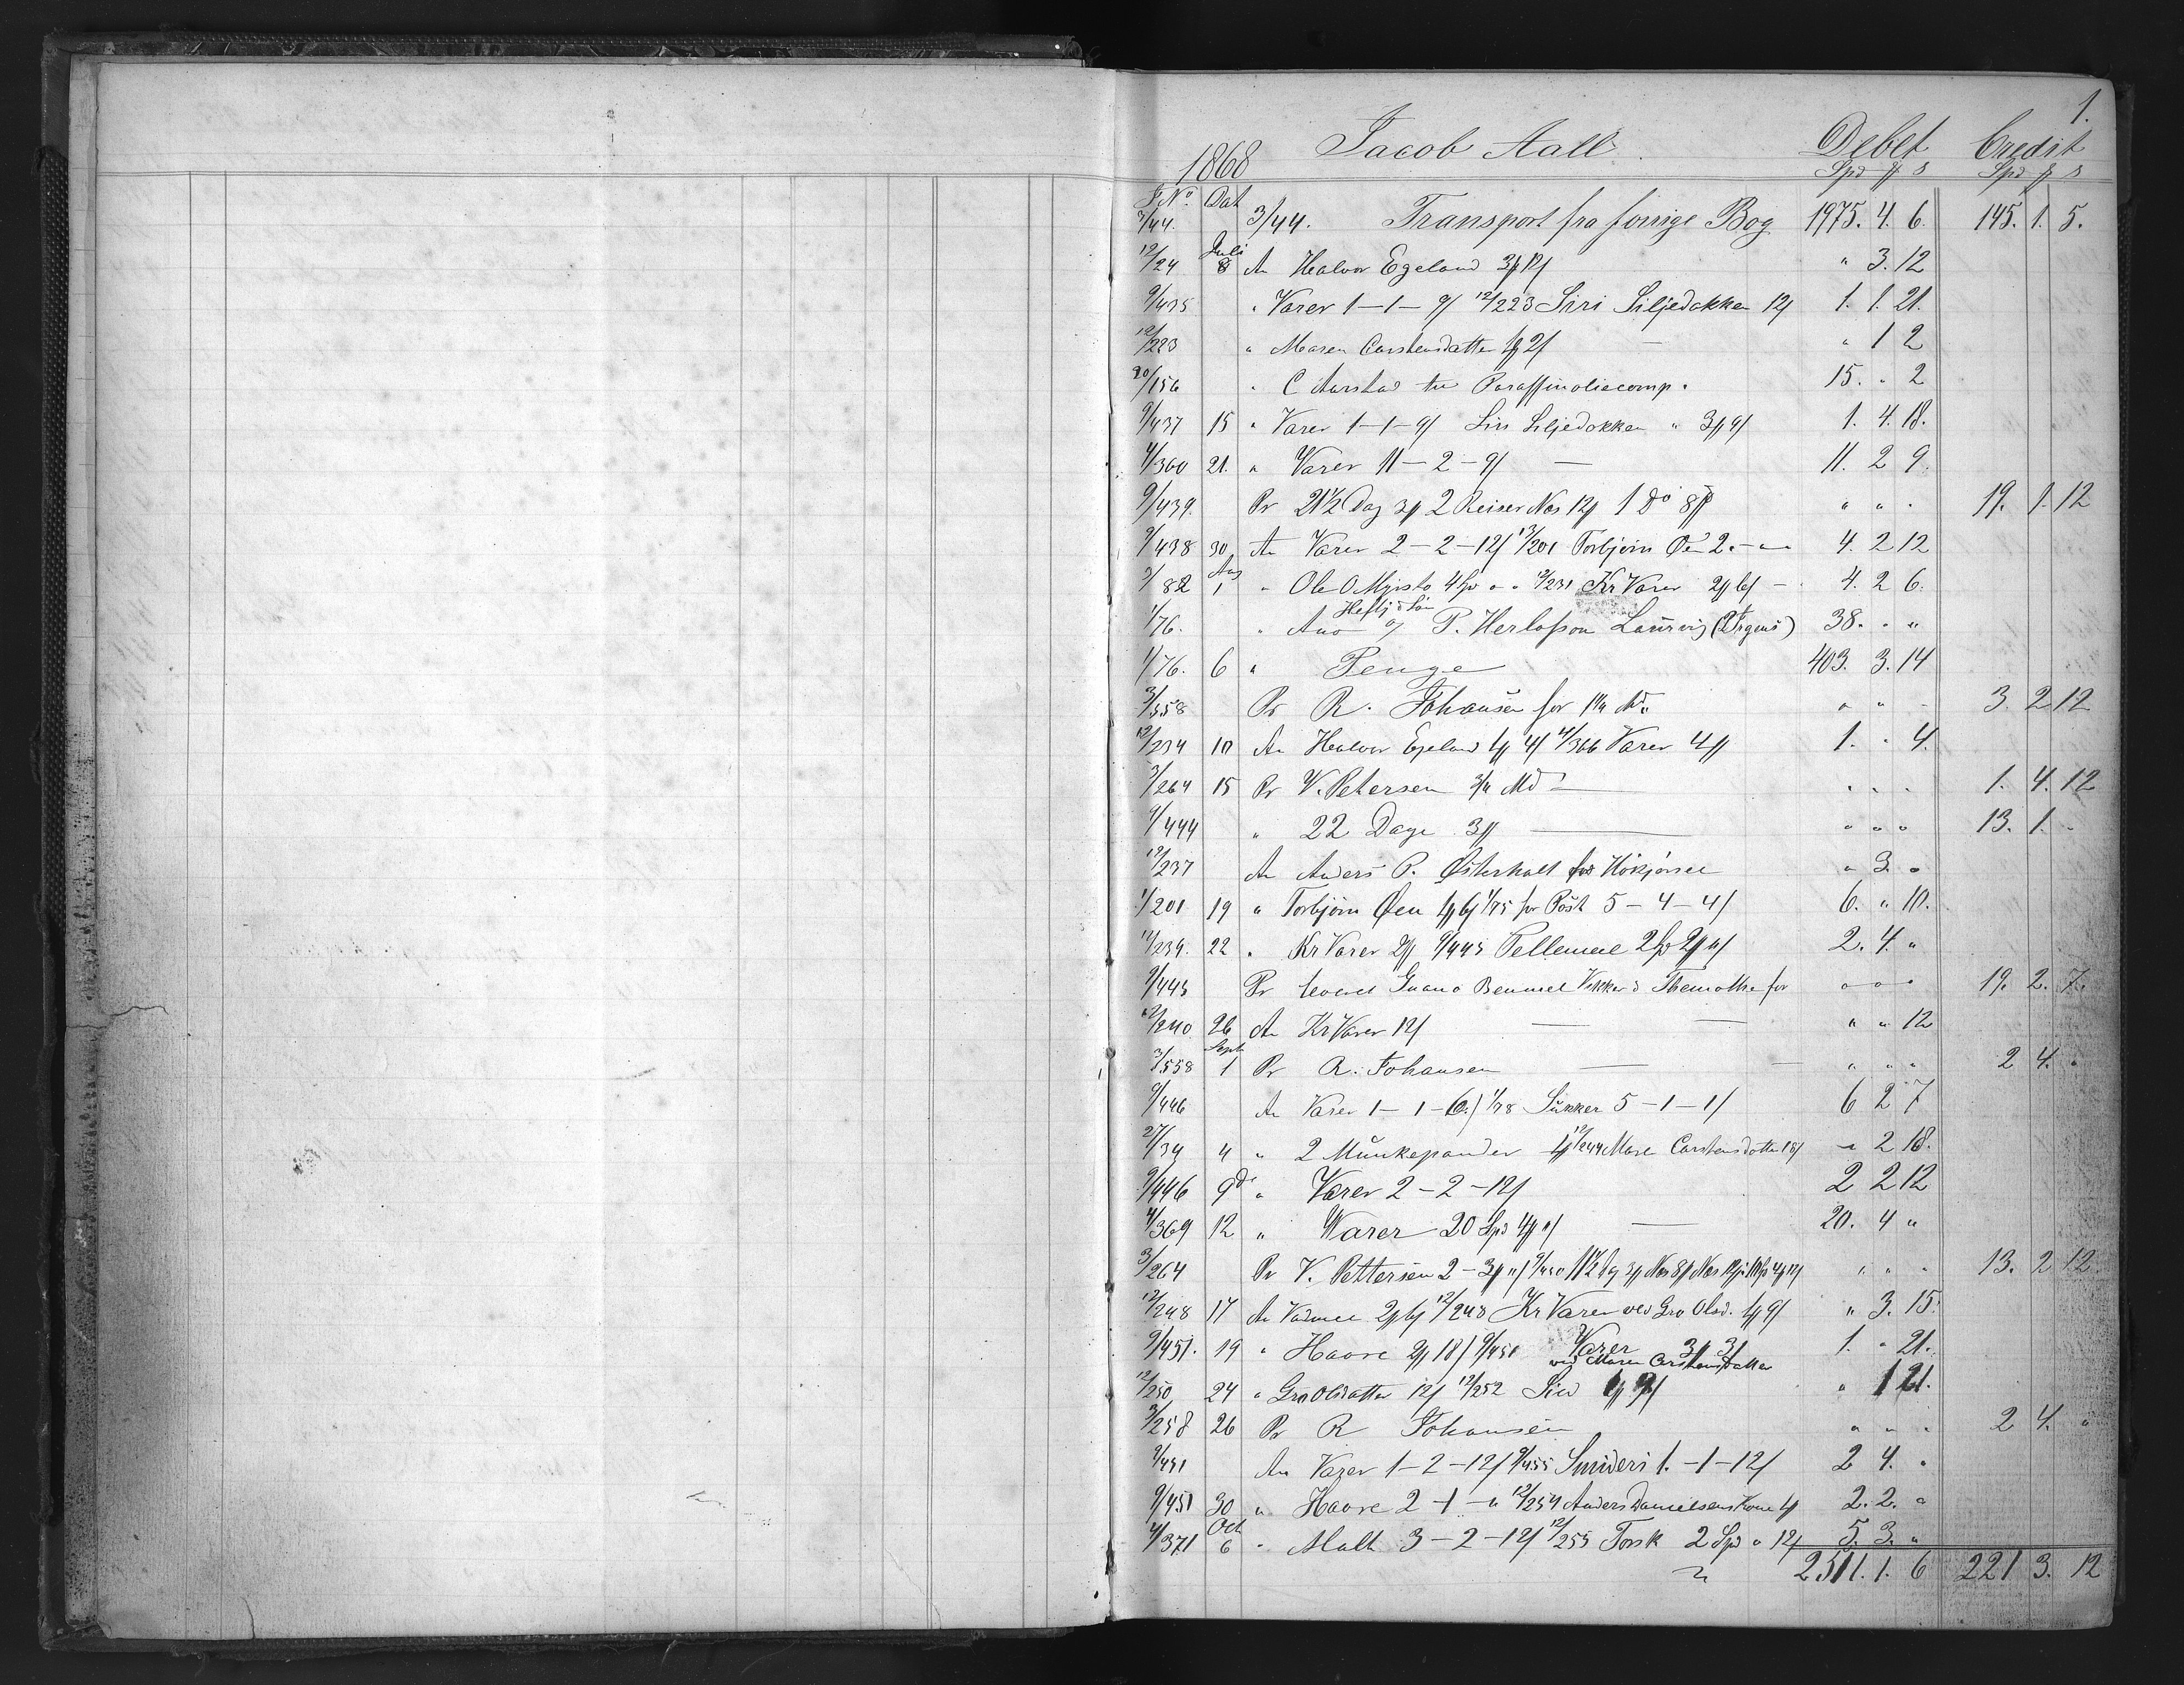 1.
1868 Jacob Aall. Debet Credit
Spd # s Spd # s
F. No. Dat
3/44. 3/44. Transport fra forrige Bog 1975. 4. 6. 145. 1. 5.
12/24 Juli 8 An Halvor Egeland " 3. 12
9/435 " Varer 1-1-9/ 12/223 Siri Siljedokken 12/ 1. 1. 21.
12/223 " Maren Carstensdatter " 1 2
20/156 " C Aarstad Paraffinoliecomp. 15. " 2
9/437 15 " Varer 1-1-9/ Siri Siljedokken " 1. 4. 18.
4/360 21. " Varer 11-2-9/ — 11. 2 9.
9/439. Pr 21½ Dag 2 Reiser Næs 1 do " " " 19. 1. 12
9/438 30 An Varer 2-2-12/ 13/201 Torbjørn Øen 2 " " 4. 2 12
3/82 Aug 1 " Ole O 4 Spd " " Kr Varer 4. 2 6.
1/76. " P. Herlofson Laurvig 38. " "
1/76. 6 " Penge 403. 3. 14
3/558 Pr R. Johansen for " " " 3. 2 12
12/234 10 An Halvor Egeland 4/366 Varer 1. " 4.
3/264 15 Pr V. Petersen 3/4 Md — " " " 1. 4. 12
9/444 " 22 Dage — " " " 13. 1. "
12/237 An Anders P. Østerholt for " 3. "
1/201 19 " Torbjørn Øen 1/75 for Post 5-4-4/ 6. " 10.
12/239. 22 " Kr Varer 9/445 2. 4. "
9/445 Pr leveret Guano Benmeel for " " " 19. 2. 7.
12/240 26 An Kr Varer 12/ — — " " 12
3/558 Sept 1 Pr R. Johansen — " " " 2 4. "
9/446 An Varer 1-1-6/ 1/78 Sukker 5-1-1/ 6 2 7
27/39 4 " 2 Munkepander 12/244 Maren Carstensdatter 18/ " 2 18.
9/446 9 " Varer 2-2-12/ 2 2 12
4/369 12 " Warer 20 Spd — 20. 4 "
3/264 Pr V. Pettersen 2-3 " " " 13. 2 12
12/248 17 An 12/248 Kr Varer ved Gro Olsd. " 3. 15.
9/451. 19 " Havre 18/ 9/451 Varer 1. " 21.
ved Maren Carstensdatter
12/250 24 " Gro Olsdatter 12/ 12/252 " 1 21.
3/258 26 Pr R Johansen " " " 2 4. "
9/451 An Varer 1-2-12/ 9/455 Smideri 1.-1-12/ 2 4. "
9/451 30 " Havre 2-1-" 12/254 Anders Danielsens Kone 2. 2. "
4/371 Oct 6 " Malt 3-2-12/ 12/255 Torsk 2 Spd " 12/ 5. 3. "
2511. 1. 6 221 3. 12